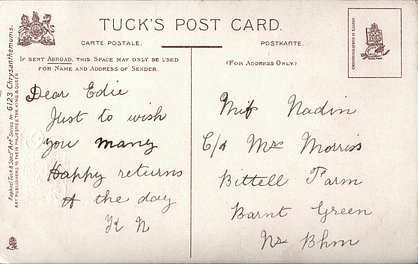 TUCK'S POST CARD.
CARTE POSTALE.
POSTKARTE.
IF SENT ABROAD, THIS SPACE MAY ONLY BE USED
FOR NAME AND ADDRESS OF SENDER.
(FOR ADDRESS ONLY)
Raphael Tuck & Sons' "Art" Series No 6123 Chrysanthemums.
ART PUBLISHERS TO THEIR MAJESTIES THE KING & QUEEN.
Dear Edie
Just to wish
you many
Happy returns
of the day
K N
Miss Nadin
C/o Mrs Morriss
Bittell Farm
Barnt Green
Nr Bhm